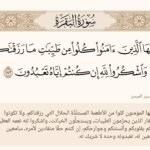 سُورَةُ البَقَرَةِ
يَٰٓأَيُّهَا الَّذِينَ ءَامَنُوا كُلُوا مِن طَيِّبَٰتِ مَا رَزَقْنَٰكُمْ
وَاشْكُرُوا لِلَّهِ إِن كُنتُمْ إِيَّاهُ تَعْبُدُونَ
المؤمنون كلوا من الأطعمة المستلذَّة الحلال التي رزقناكم، ولا تكونوا
الذين يحرِّمون الطيبات، ويستحِلُّون الخبائث، واشكروا لله نعمه العظيمة
بقلوبكم وألسنتكم وجوارحكم، إن كنتم حقًا منقادين لأمره، سامعين
له، تعبدونه وحده لا شريك له.